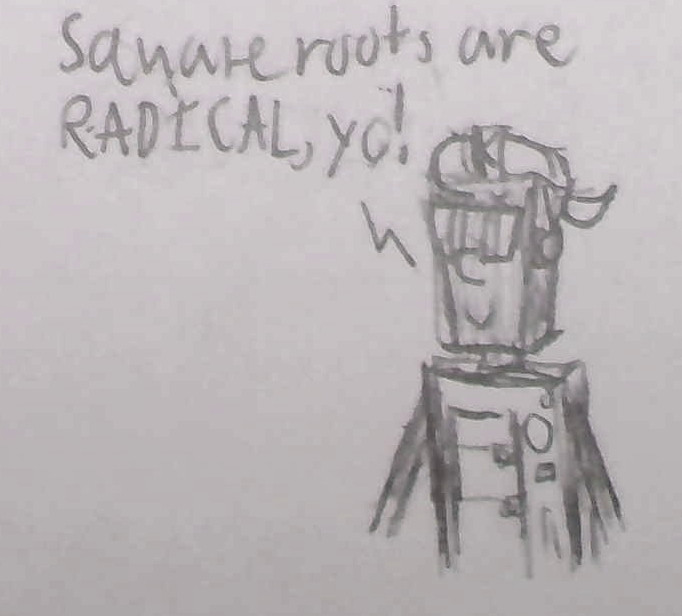 Square roots are
RADICAL, yo!